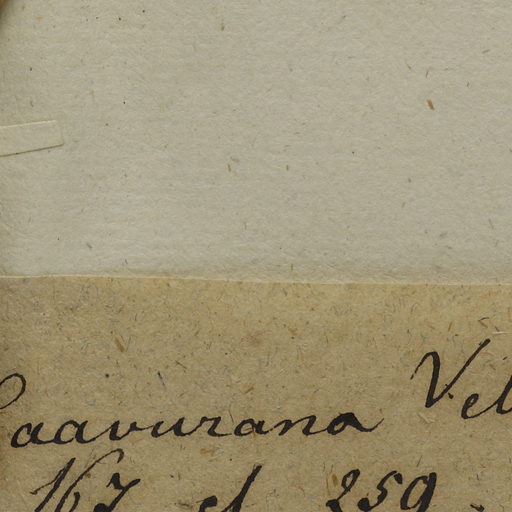 Caavurana Vel
167 et 259.